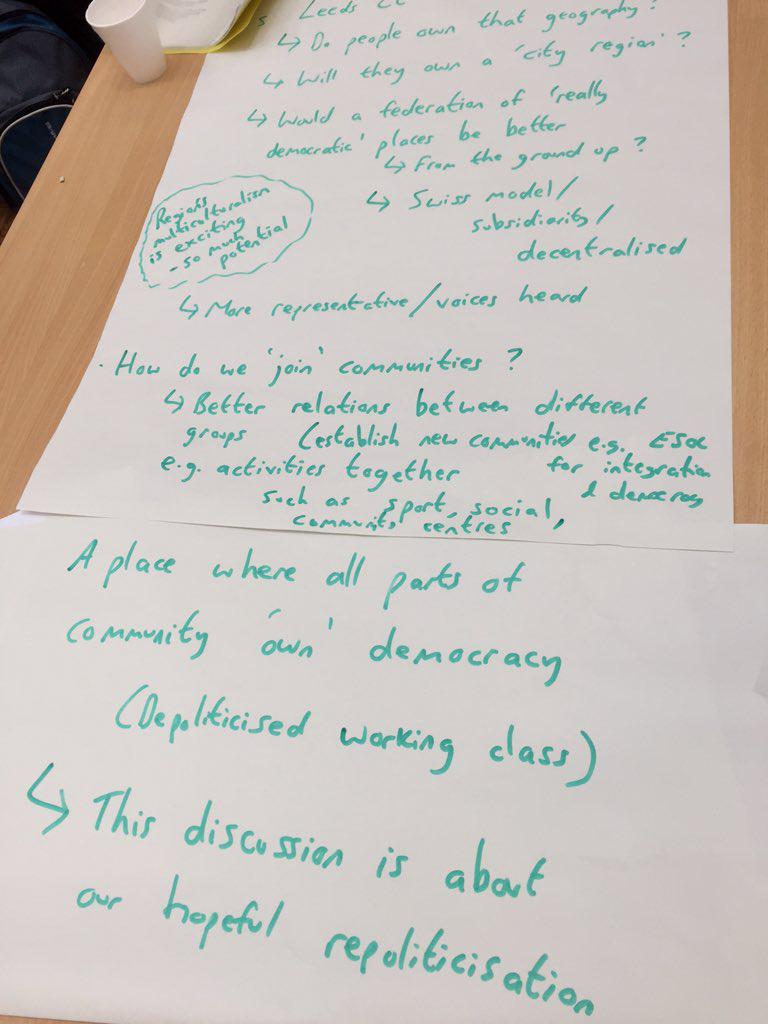 Leeds
↳ Do people own that geography?
↳ Will they own a 'city region'?
↳ Would a federation of 'really
democratic' places be better
↳ From the ground up?
↳ Swiss model/
subsidiarity/
decentralised
Regions
multiculturalism
is exciting
- so much
potential
↳ More representative/voices heard
· How do we 'join' communities?
↳ Better relations between different
groups (establish new communities e.g. ESOL
e.g. activities together for integration
& democracy
such as sport, social,
community centres
A place where all parts of
community 'own' democracy
(Depoliticised working class)
↳ This discussion is about
our hopeful repoliticisation